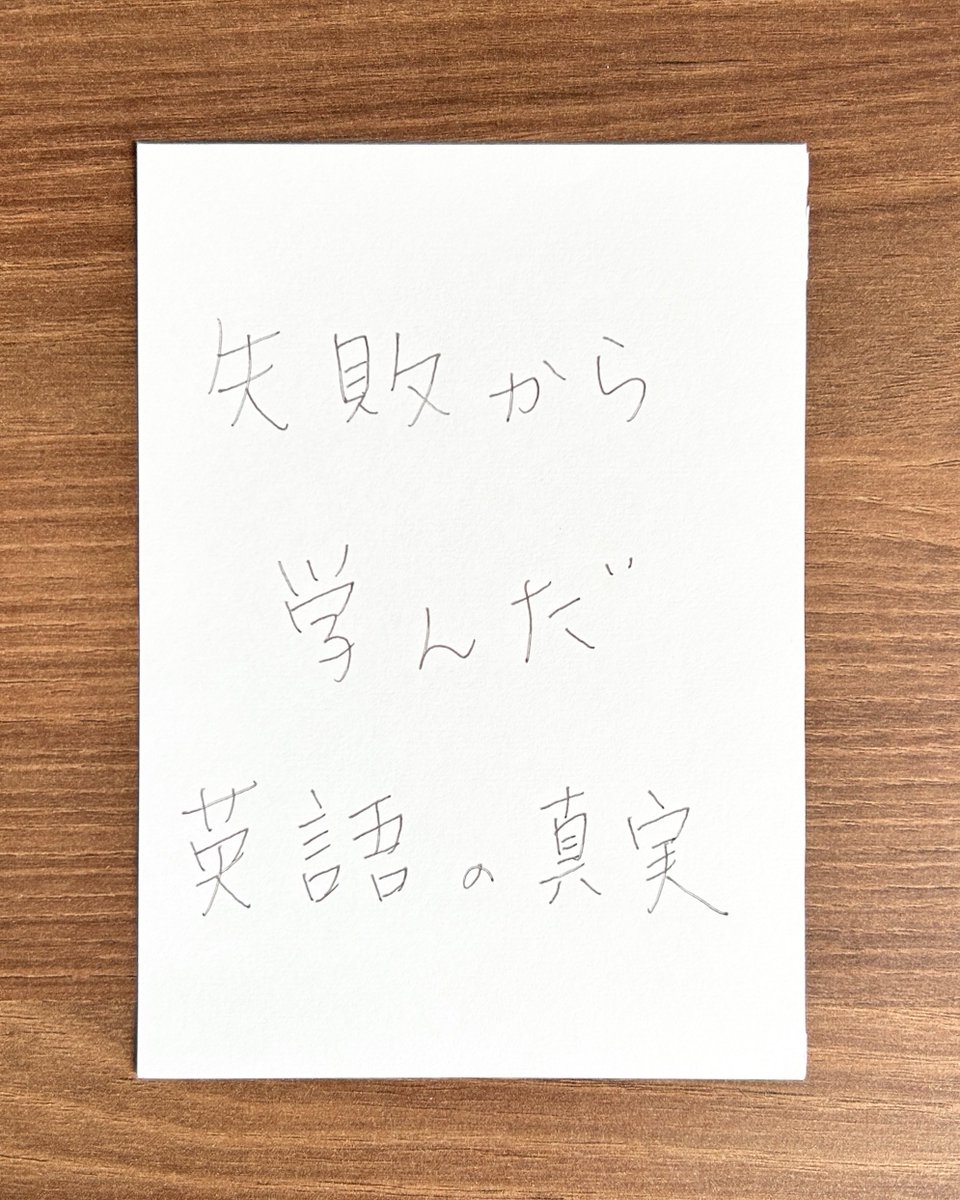 失敗から
学んだ
英語の真実